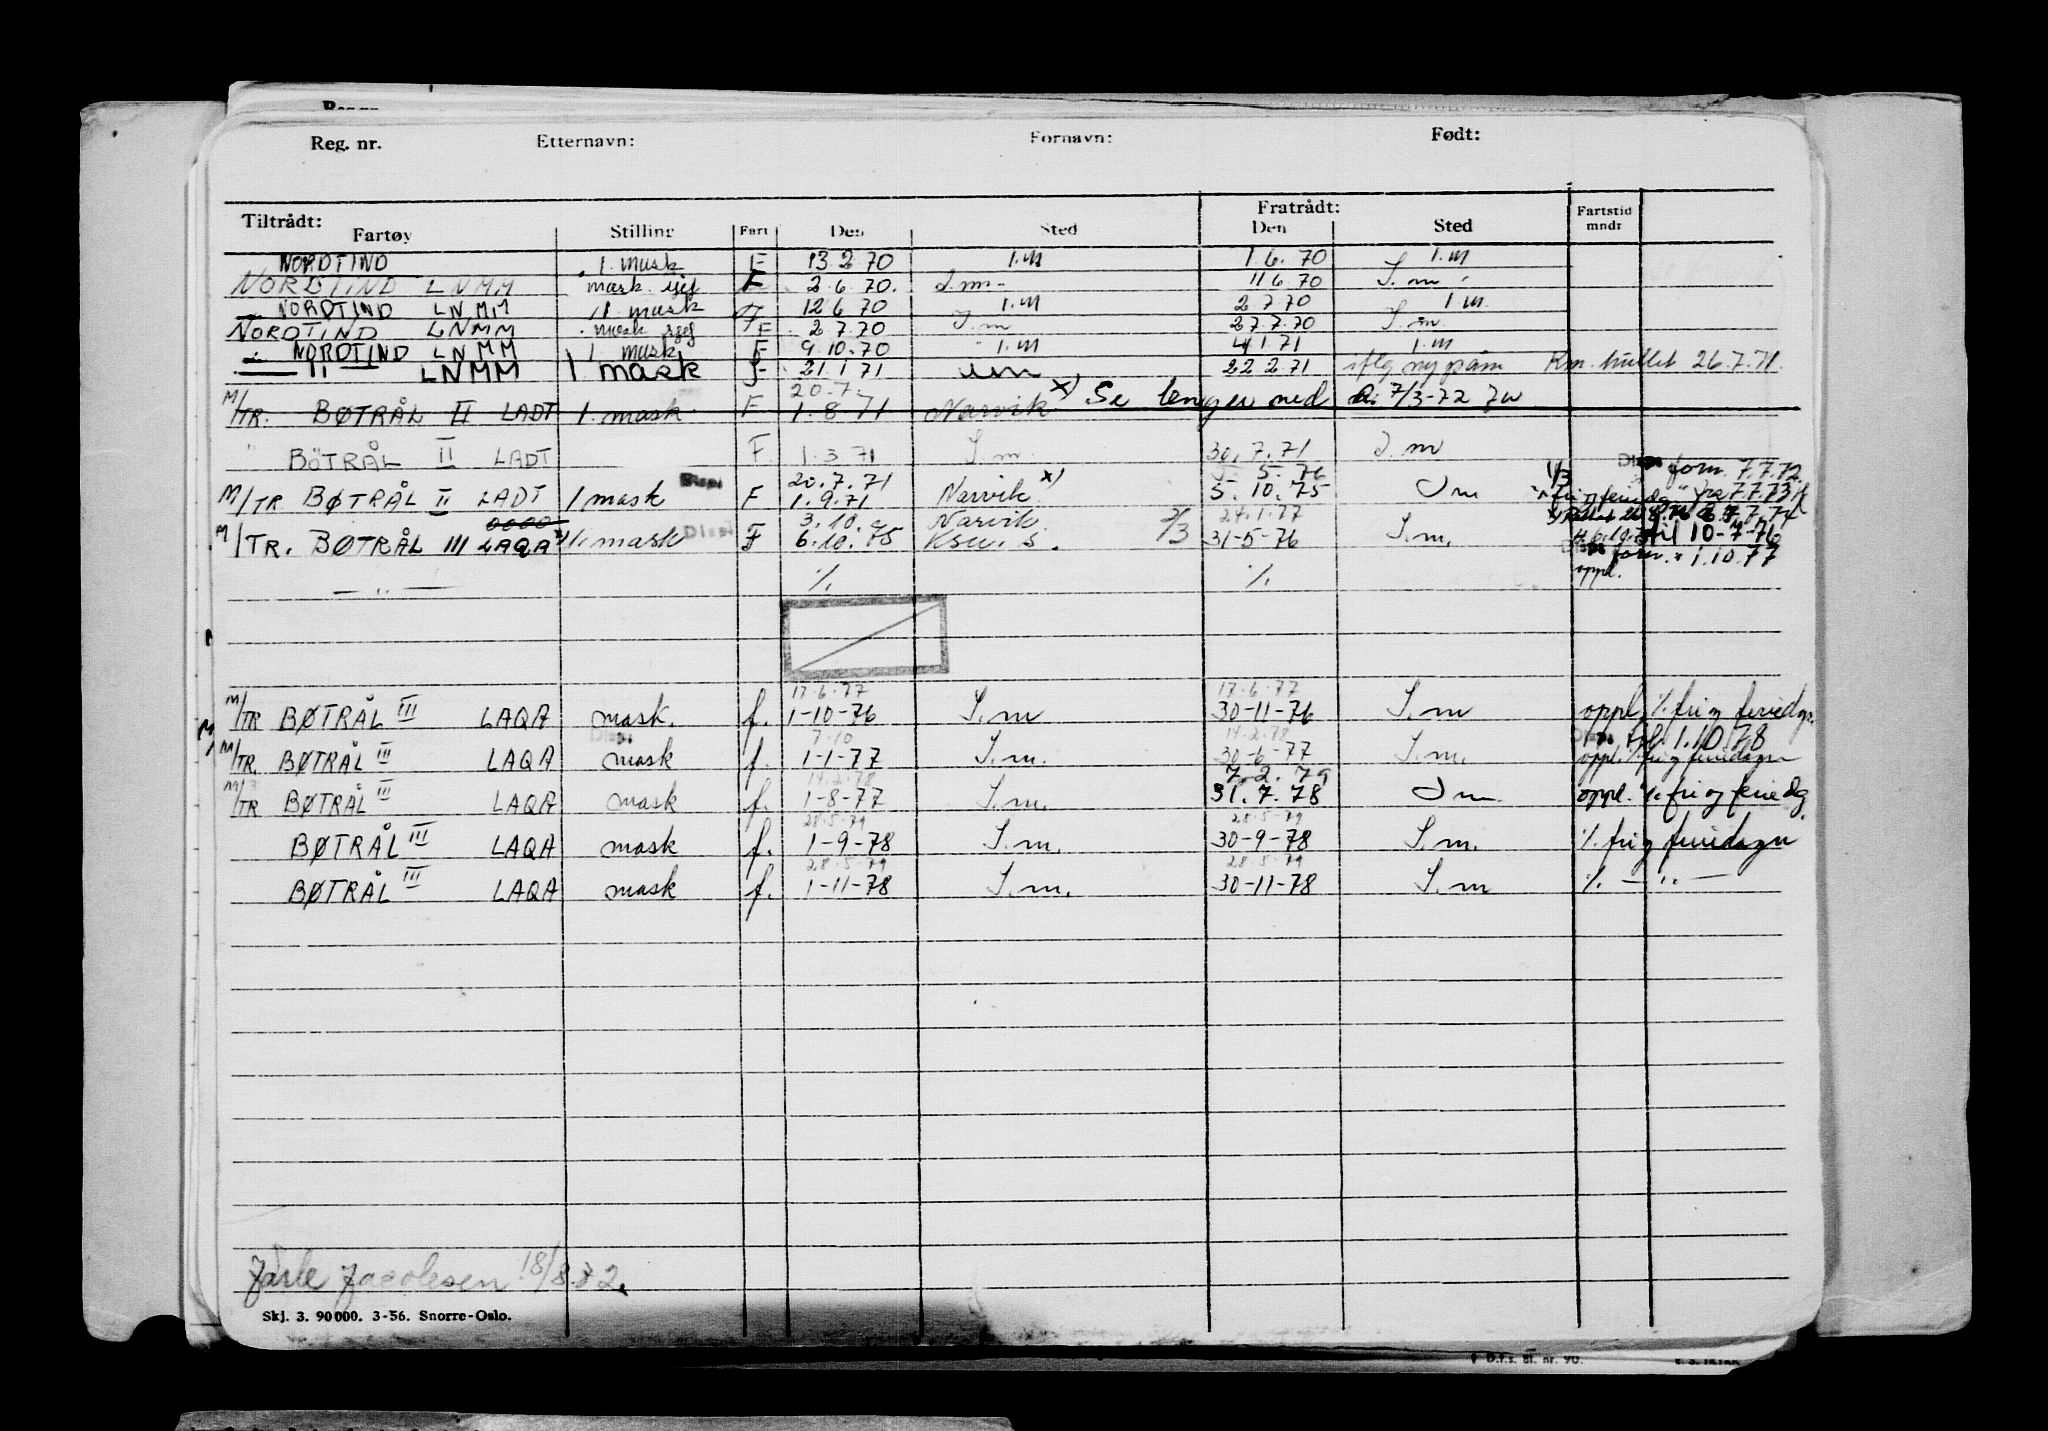 Reg. nr. Etternavn: Fornavn: Født:
Tiltrådt: Fratrådt:
Fartøy Stilling Fart Den Sted Den Sted Fartstid mndr
NORDTIND 1. mask F 13.2.70 I.M 1.6.70 I.M
NORDTIND LNMM mask. sjef F 2.6.70. I.m. 11 6.70 I.m.
NORDTIND LNMM 1. mask F 12 6 70 I.M 2.7.70 I.M.
NORDTIND LNMM mask sjef F 2.7.70 I.m 27.7.70 I.m.
NORDTIND LNMM 1. mask F 9.10.70 I.M 4.1.71 I.M
— " — LNMM 1 mask F 21.1.71 I.m 22 2.71 iflg ny påm Km. hullet 26.7.71.
20.7.
M/TR. BØTRÅL II LADT 1. mask F 1.8.71 Narvik x) Se lenger ned 7/3-72
" BÖTRÅL II LADT F 1.3.71 I.m. 30.7.71 I.m
20.7.71 5.76 1/3 Disp. forn. 7.7.72
M/TR BØTRÅL II LADT 1 mask Disp F 1.9.71 Narvik x) 5.10.75 I m
3.10. Narvik 24.1.77
M/TR. BØTRÅL III LAQA 1. mask Disp F 6.10.75 Ksu. S. 2/3 31-5-76 I.m. til 10-7-76
— " — ٪. ٪. oppl. forn. 1.10.77
17.6.77 17.6.77
M/TR BØTRÅL III LAQA mask. f. 1-10-76 I.m 30-11-76 I.m oppl. ٪. fri og feriedgr.
Disp. 7.10 14.2.78 1.10.78
M/TR. BØTRÅL III LAQA mask f. 1-1-77 I.m. 30-6-77 I.m. oppl. ٪. fri og feriedagr
14.2.78 7.2.79
M/TR BØTRÅL III LAQA mask f. 1-8-77 I.m. 31.7.78 I m. oppl. ٪. fri og feriedg.
28.5.79 28.5.79
BØTRÅL III LAQA mask f. 1-9-78 I.m. 30-9-78 I.m. ٪. fri og feriedagr
28.5.79 28.5.79
BØTRÅL III LAQA mask f. 1-11-78 I.m. 30-11-78 I.m ٪. — " —
Jarle Jacobsen 18/8.82.
Skj. 3. 90 000. 3-56. Snorre-Oslo.